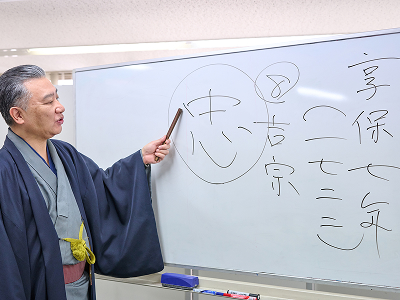 享保七年
(一七二二)
⑧吉宗
忠